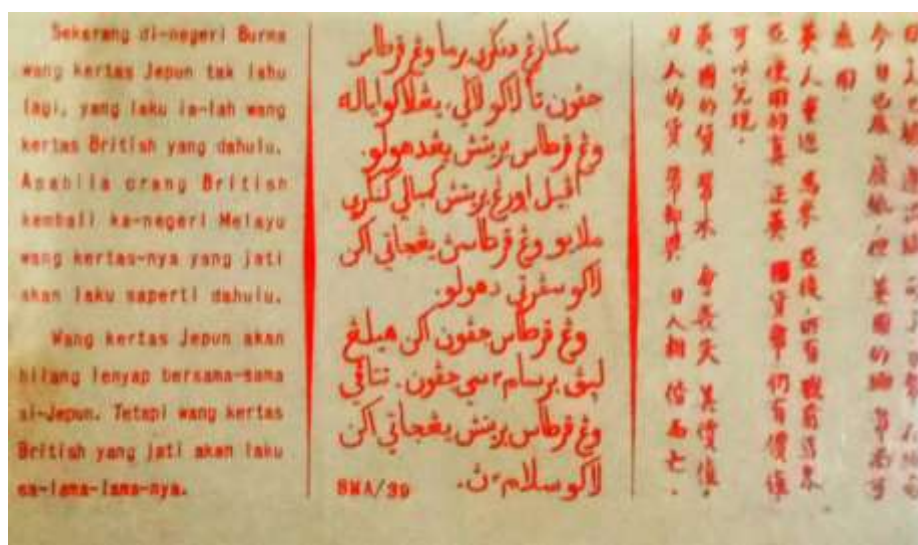 Sekarang di-negeri Burma
wang kertas Jepun tak laku
lagi, yang laku ia-lah wang
kertas British yang dahulu.
Apabila orang British
kembali ka-negeri Melayu
wang kertas-nya yang jati
akan laku saperti dahulu.
Wang kertas Jepun akan
hilang lenyap bersama-sama
si-Jepun. Tetapi wang kertas
British yang jati akan laku
sa-lama-lama-nya.
سكارڠ دنڬري برما وڠ قرطاس
جڤون تا لاکو لاڬي، يڠ لاکو ياله
وڠ قرطاس بريتش يڠ دهولو.
اڤبيل اورڠ بريتش کمبالي کنڬري
ملايو وڠ قرطاسن يڠ جاتي اکن
لاکو سڤرتي دهولو.
وڠ قرطاس جڤون اکن هيلڠ
لپڤ برسام٢ سي جڤون. تتاڤي
وڠ قرطاس بريتش يڠ جاتي اکن
لاکو سلام٢ ن.
SMA/39
無用
英人重返馬來亞後，所有戰前馬來
亞使用的真正英國貨幣仍有價值
可以兌現。
英國的貨幣永會長久其價值。
日人的貨幣却與日人相偕而亡。